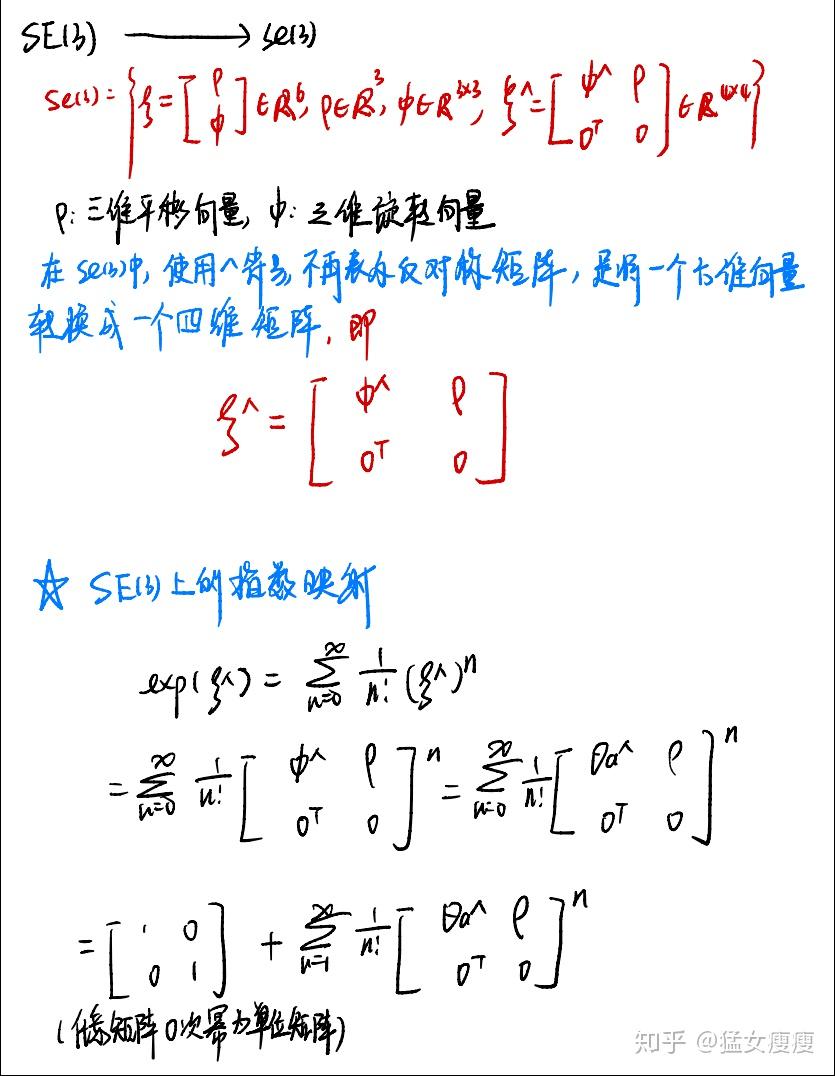 SE(3) ⟶ se(3)
se(3) = { ξ = [ρ; φ] ∈ R⁶, ρ ∈ R³, φ ∈ R³ˣ³, ξ^ = [φ^ ρ; 0ᵀ 0] ∈ R⁴ˣ⁴ }
ρ: 三维平移向量, φ: 三维旋转向量
在se(3)中, 使用^符号, 不再表示反对称矩阵, 是将一个六维向量
转换成一个四维矩阵, 即
ξ^ = [φ^ ρ; 0ᵀ 0]
☆ SE(3)上的指数映射
exp(ξ^) = ∑_{n=0}^{∞} 1/n! (ξ^)ⁿ
= ∑_{n=0}^{∞} 1/n! [φ^ ρ; 0ᵀ 0]ⁿ = ∑_{n=0}^{∞} 1/n! [θa^ ρ; 0ᵀ 0]ⁿ
= [1 0; 0 1] + ∑_{n=1}^{∞} 1/n! [θa^ ρ; 0ᵀ 0]ⁿ
(任意矩阵0次幂为单位矩阵)
知乎 @猛女瘦瘦